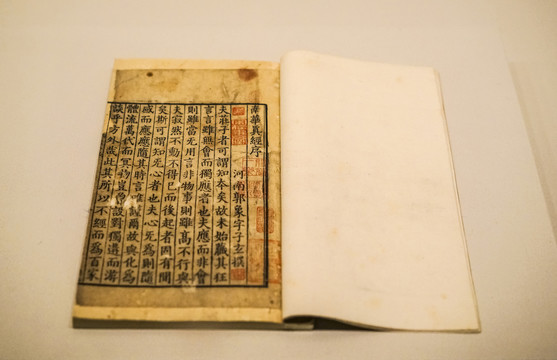 南華真經序
河南郭象字子玄撰
夫莊子者可謂知本矣故未始藏其狂
言言雖無會而獨應者也夫應而非會
則雖當无用言非物事則雖高不行與
夫寂然不動不得已而後起者固有間
矣斯可謂知无心者也夫心无爲則隨
感而應應隨其時言唯謹爾故與化爲
體流萬代而冥物豈曾設對獨遘而游
談乎方外哉此其所以不經而爲百家